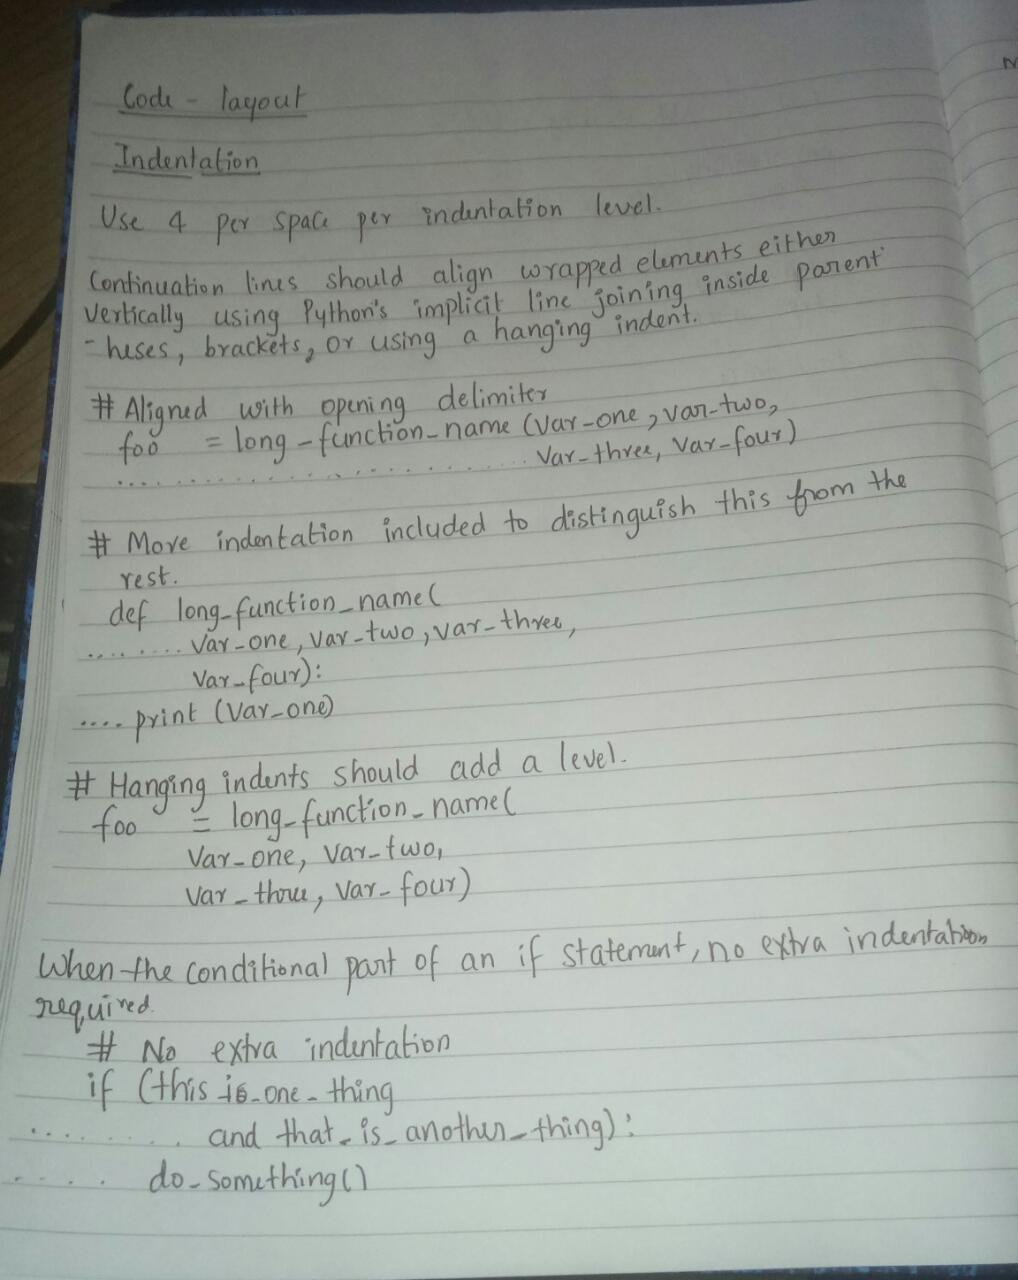 Code - layout
Indentation
Use 4 per space per indentation level.
Continuation lines should align wrapped elements either
vertically using Python's implicit line joining inside parent
- heses, brackets, or using a hanging indent.
# Aligned with opening delimiter
foo = long_function_name (var_one, var_two,
.................... var_three, var_four)
# More indentation included to distinguish this from the
rest.
def long_function_name(
........ var_one, var_two, var_three,
var_four):
.... print (var_one)
# Hanging indents should add a level.
foo = long_function_name(
var_one, var_two,
var_three, var_four)
When the conditional part of an if statement, no extra indentation
required.
# No extra indentation
if (this is_one_thing
......... and that_is_another_thing):
.... do_something()